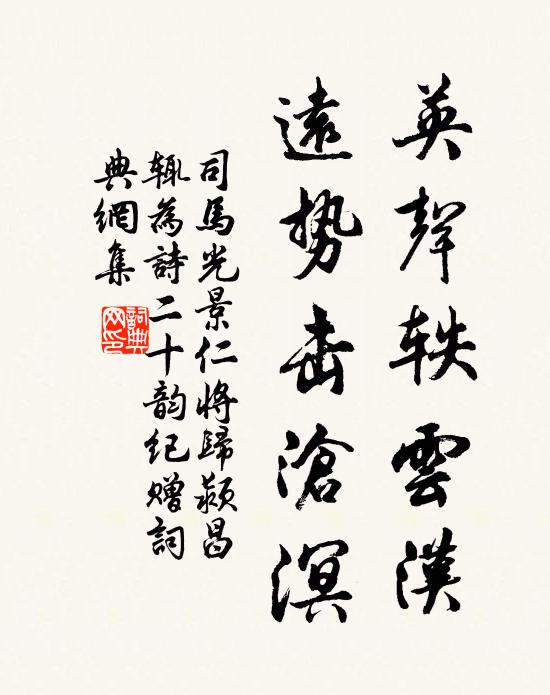 英聲軼雲漢
遠勢击滄溟
司馬光景仁將歸颍昌
辄為詩二十韵纪赠詞
典網集
詞典网印